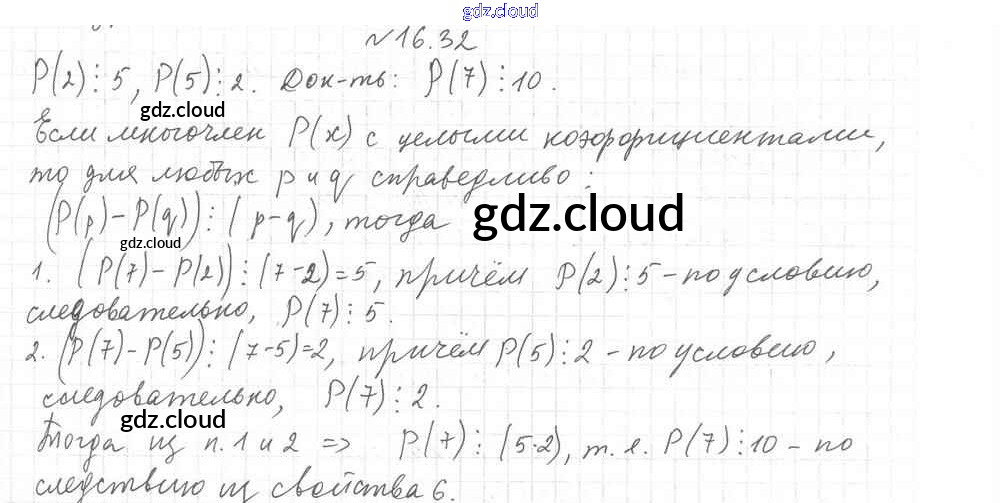 gdz.cloud
№16.32
P(2)⋮5, P(5)⋮2. Док-ть: P(7)⋮10.
gdz.cloud
Если многочлен P(x) с целыми коэффициентами,
то для любых p и q справедливо:
(P(p)-P(q))⋮(p-q), тогда gdz.cloud
gdz.cloud
1. (P(7)-P(2))⋮(7-2)=5, причём P(2)⋮5-по условию,
следовательно, P(7)⋮5.
gdz.cloud
2. (P(7)-P(5))⋮(7-5)=2, причём P(5)⋮2-по условию,
следовательно, P(7)⋮2.
gdz.cloud
Тогда из п.1 и 2 => P(7)⋮(5·2), т.е. P(7)⋮10-по
следствию из свойства 6.